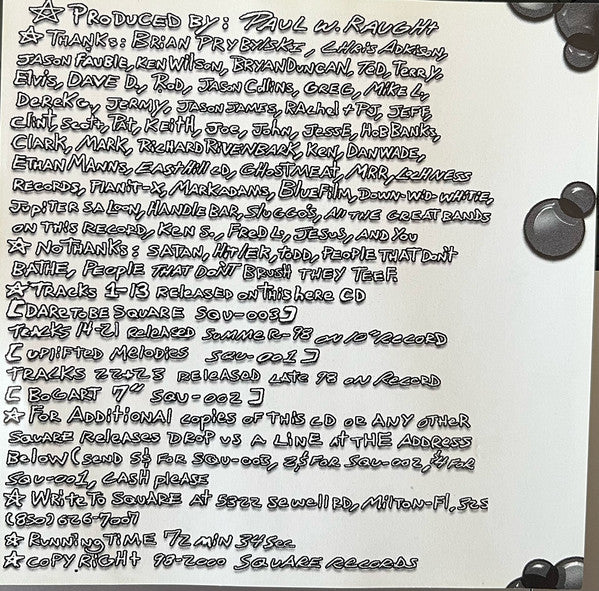 ☆ PRODUCED BY: PAUL W. RAUGHT
☆ THANKS: BRIAN PRYBYLSKI, CHRIS ADKISON,
JASON FAUBIE, KEN WILSON, BRYAN DUNCAN, TOD, TERRY,
ELVIS, DAVE D., ROD, JASON COLLINS, GREG, MIKE L.,
DEREK G, JERMY, JASON JAMES, RACHEL + PJ, JEFF,
CLINT, SCOTT, PAT, KEITH, JOE, JOHN, JESSE, HOB BANKS,
CLARK, MARK, RICHARD RIVENBARK, KEN, DAN WADE,
ETHAN MANNS, EAST HILL CD, GHOSTMEAT, MRR, LOCHNESS
RECORDS, PLANIT-X, MARK ADAMS, BLUE FILM, DOWN-WID-WHITIE,
JUPITER SALOON, HANDLE BAR, SLUGGO'S, ALL THE GREAT BANDS
ON THIS RECORD, KEN S., FRED L., JESUS, AND YOU
☆ NO THANKS: SATAN, HITLER, TODD, PEOPLE THAT DON'T
BATHE, PEOPLE THAT DON'T BRUSH THEY TEEF.
☆ TRACKS 1-13 RELEASED ON THIS HERE CD
[DARE TO BE SQUARE SQU-003]
TRACKS 14-21 RELEASED SUMMER-98 ON 10" RECORD
[UPLIFTED MELODIES SQU-001]
TRACKS 22+23 RELEASED LATE 98 ON RECORD
[BOGART 7" SQU-002]
☆ FOR ADDITIONAL COPIES OF THIS CD OR ANY OTHER
SQUARE RELEASES DROP US A LINE AT THE ADDRESS
BELOW (SEND 5$ FOR SQU-003, 2$ FOR SQU-002, $4 FOR
SQU-001, CASH PLEASE
☆ WRITE TO SQUARE AT 5322 SEWELL RD, MILTON-FL, 325
(850) 626-7007
☆ RUNNING TIME 72 MIN 34 SEC
☆ COPYRIGHT 98-2000 SQUARE RECORDS